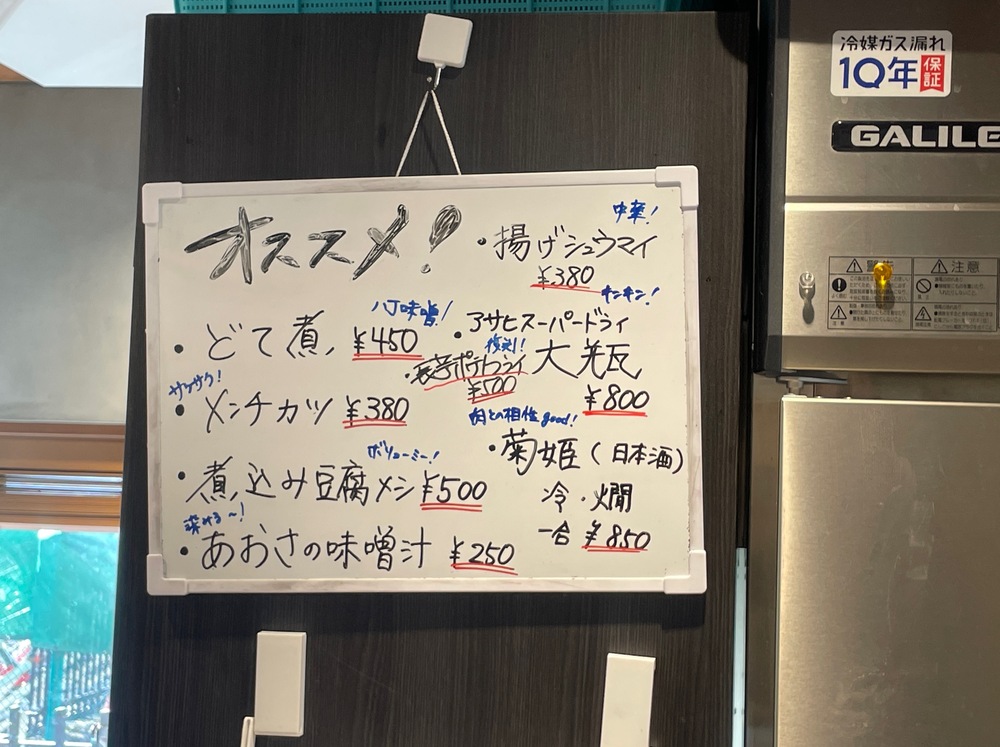 オススメ!
八丁味噌!
・どて煮 ¥450
サクサク!
・メンチカツ ¥380
ボリューミー!
・煮込み豆腐メシ ¥500
染みる〜!
・あおさの味噌汁 ¥250
中華!
・揚げシュウマイ
¥380
キンキン!
・アサヒスーパードライ
大瓶
¥800
復刻!
ポテトフライ
¥500
肉との相性good!
・菊姫(日本酒)
冷・燗
一合 ¥850
冷媒ガス漏れ
10年保証
GALILE
注意